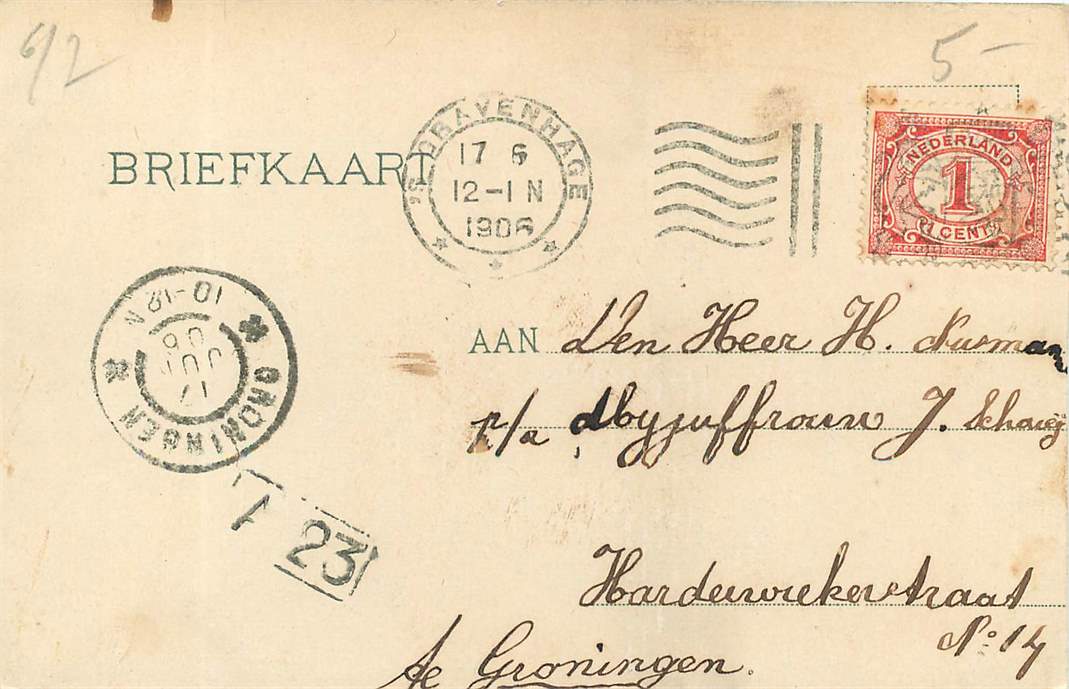 6/2
5-
BRIEFKAART
'S-GRAVENHAGE
17 6
12-1 N
1906
NEDERLAND
1
1 CENT
GRONINGEN
17 JUN 06
10-12 N
AAN Den Heer H.
p/a Mejuffrouw J.
23
Harderwiekerstraat
No: 14
te Groningen.